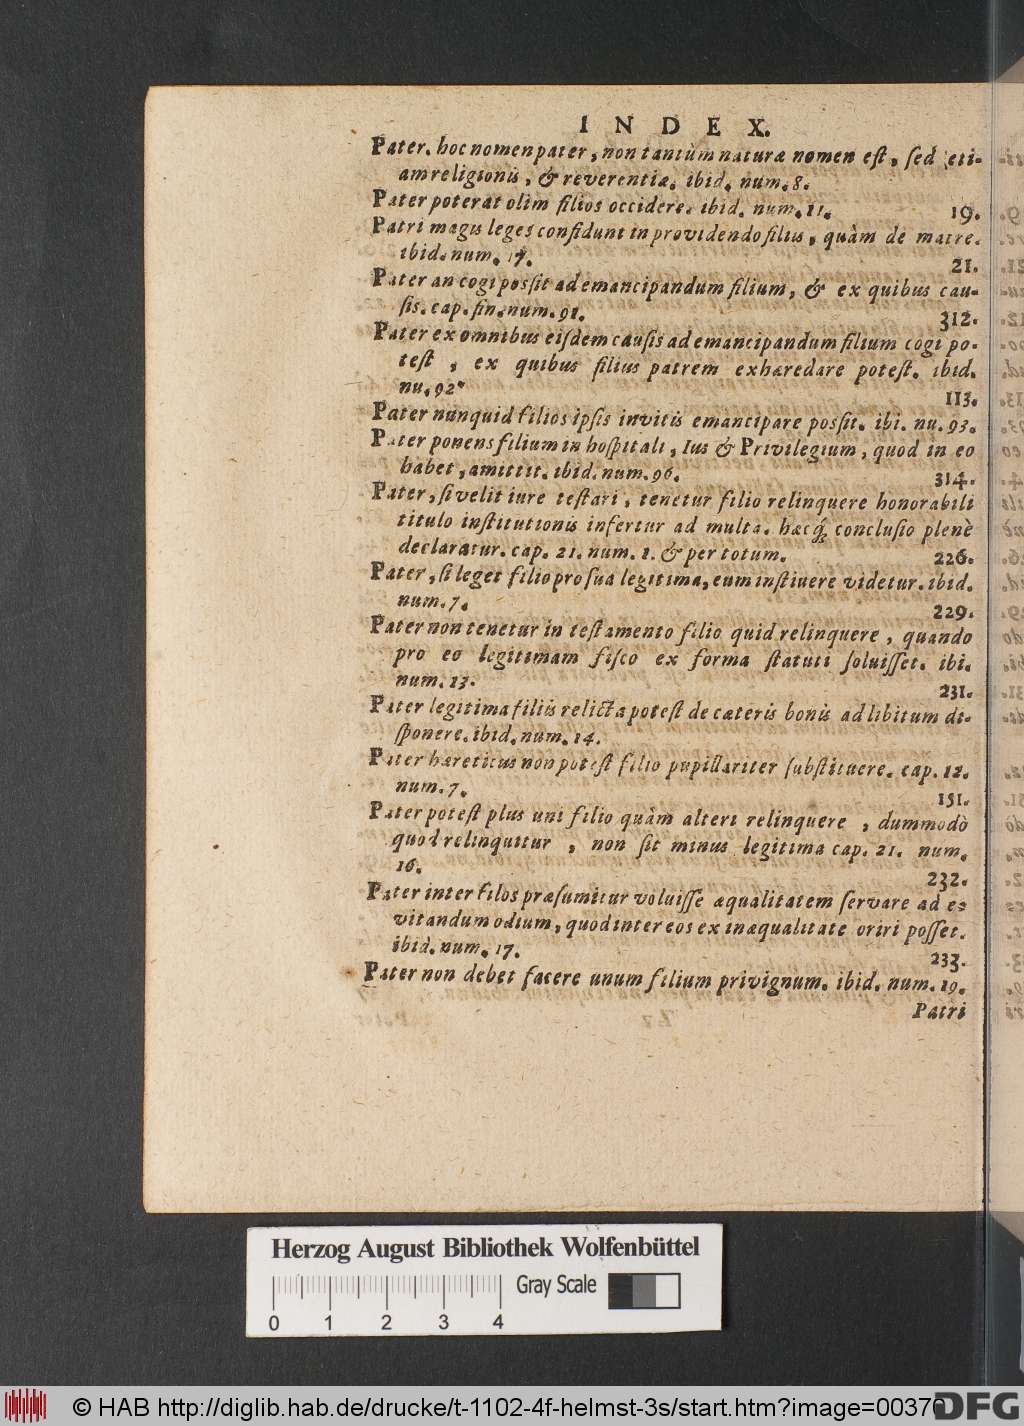 INDEX.
Pater. hoc nomen pater, non tantùm naturæ nomen est, sed eti-
am religionis, & reverentiæ. ibid. num. 8.
Pater poterat olim filios occidere. ibid. num. 11. 19.
Patri magis leges confidunt in providendo filiis, quàm de matre.
ibid. num. 17. 21.
Pater an cogi possit ad emancipandum filium, & ex quibus cau-
sis. cap. fin. num. 91. 312.
Pater ex omnibus eisdem causis ad emancipandum filium cogi po-
test, ex quibus filius patrem exhæredare potest. ibid.
nu. 92. 113.
Pater nunquid filios ipsis invitis emancipare possit. ibi. nu. 93.
Pater ponens filium in hospitali, Ius & Privilegium, quod in eo
habet, amittit. ibid. num. 96. 314.
Pater, si velit iure testari, tenetur filio relinquere honorabili
titulo institutionis infertur ad multa. hæcq́; conclusio plenè
declaratur. cap. 21. num. 1. & per totum. 226.
Pater, si leget filio pro sua legitima, eum instiuere videtur. ibid.
num. 7. 229.
Pater non tenetur in testamento filio quid relinquere, quando
pro eo legitimam fisco ex forma statuti soluisset. ibi.
num. 13. 231.
Pater legitima filiis relicta potest de cæteris bonis ad libitum di-
sponere. ibid. num. 14.
Pater hæreticus non potest filio pupillariter substituere. cap. 12.
num. 7. 151.
Pater potest plus uni filio quàm alteri relinquere, dummodò
quod relinquitur, non sit minus legitima cap. 21. num.
16. 232.
Pater inter filos præsumitur voluisse æqualitatem servare ad e-
vitandum odium, quod inter eos ex inæqualitate oriri posset.
ibid. num. 17. 233.
Pater non debet facere unum filium privignum. ibid. num. 19.
Patri
Herzog August Bibliothek Wolfenbüttel
Gray Scale
0 1 2 3 4
© HAB http://diglib.hab.de/drucke/t-1102-4f-helmst-3s/start.htm?image=00370
DFG